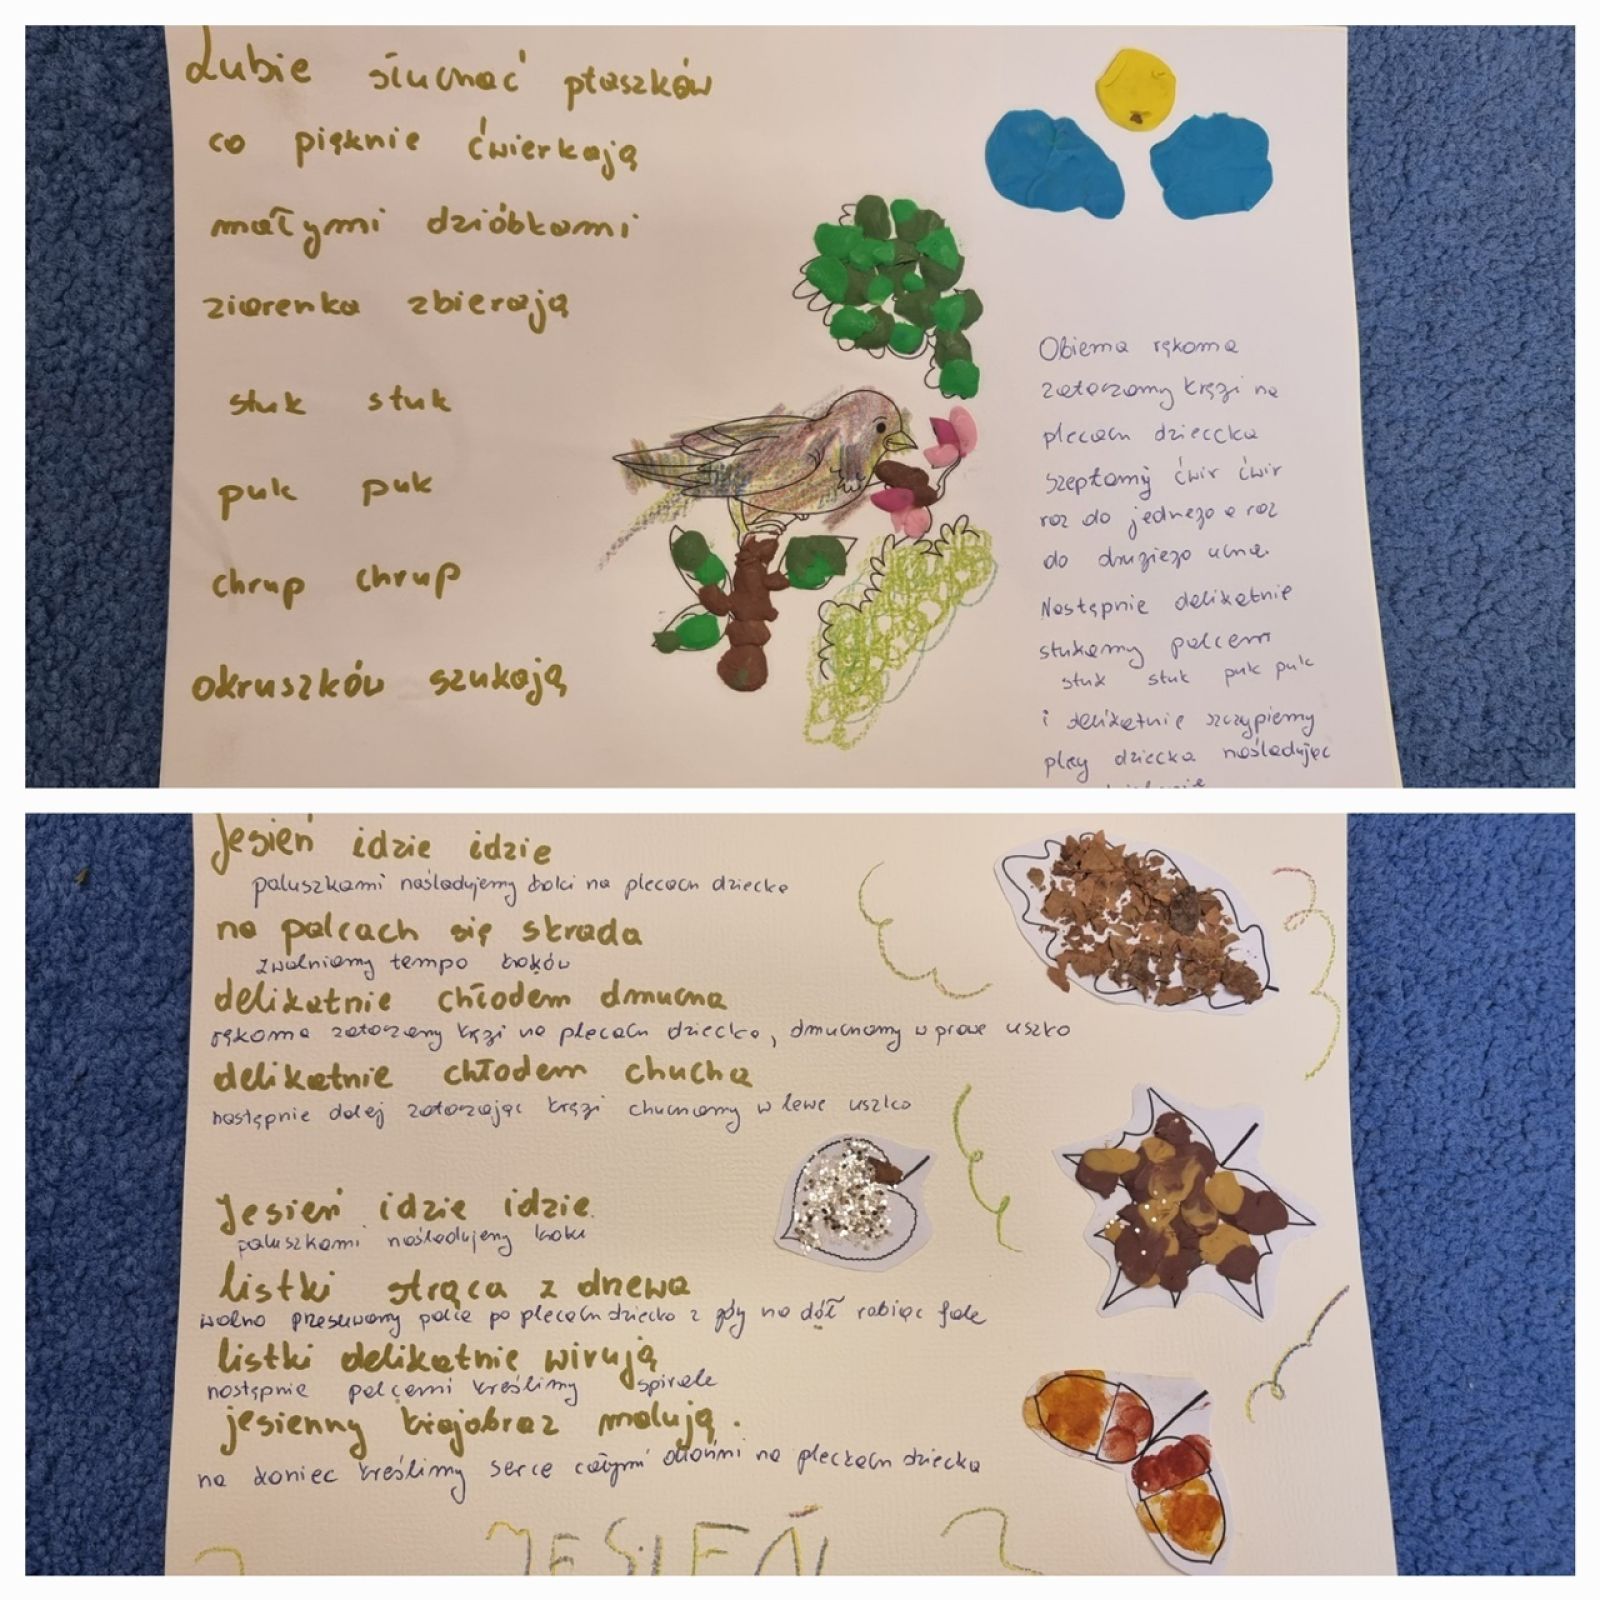 Lubię słuchać ptaszków
co pięknie ćwierkają
małymi dzióbkami
ziarenka zbierają
stuk stuk
puk puk
chrup chrup
okruszków szukają
Obiema rękoma
zataczamy kręgi na
plecach dziecka
szeptamy ćwir ćwir
raz do jednego a raz
do drugiego ucha.
Następnie delikatnie
stukamy palcem
stuk stuk puk puk
i delikatnie szczypiemy
plecy dziecka naśladując
Jesień idzie idzie
paluszkami naśladujemy kroki na plecach dziecka
na palcach się skrada
zwalniamy tempo kroków
delikatnie chłodem dmucha
rękoma zataczamy kręgi na plecach dziecka, dmuchamy w prawe uszko
delikatnie chłodem chucha
następnie dalej zataczając kręgi chuchamy w lewe uszko
Jesień idzie idzie
paluszkami naśladujemy kroki
listki strąca z drzewa
wolno przesuwamy palce po plecach dziecka z góy na dół robiąc fale
listki delikatnie wirują
następnie palcami kreślimy spirale
jesienny krajobraz malują.
na koniec kreślimy serce całymi dłońmi na pleczach dziecka
JESIEŃ